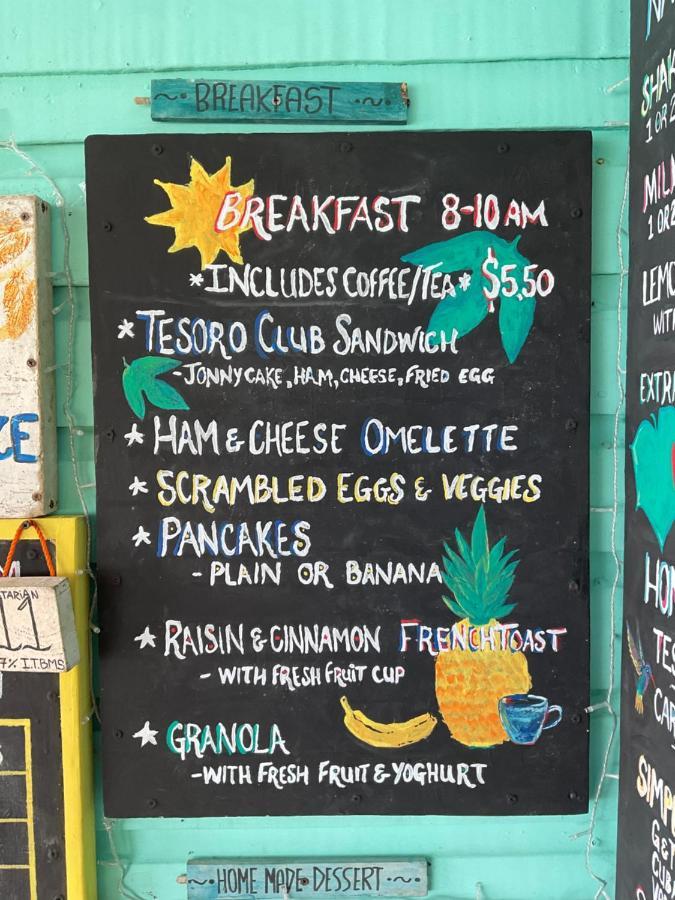 ~BREAKFAST~
BREAKFAST 8-10 AM
*INCLUDES COFFEE/TEA* $5,50
*TESORO CLUB SANDWICH
-JONNYCAKE, HAM, CHEESE, FRIED EGG
*HAM & CHEESE OMELETTE
*SCRAMBLED EGGS & VEGGIES
*PANCAKES
-PLAIN OR BANANA
*RAISIN & CINNAMON FRENCHTOAST
-WITH FRESH FRUIT CUP
*GRANOLA
-WITH FRESH FRUIT & YOGHURT
~HOME MADE DESSERT~
11
7% I.T.B.M.S
1 OR
1 OR
WITH